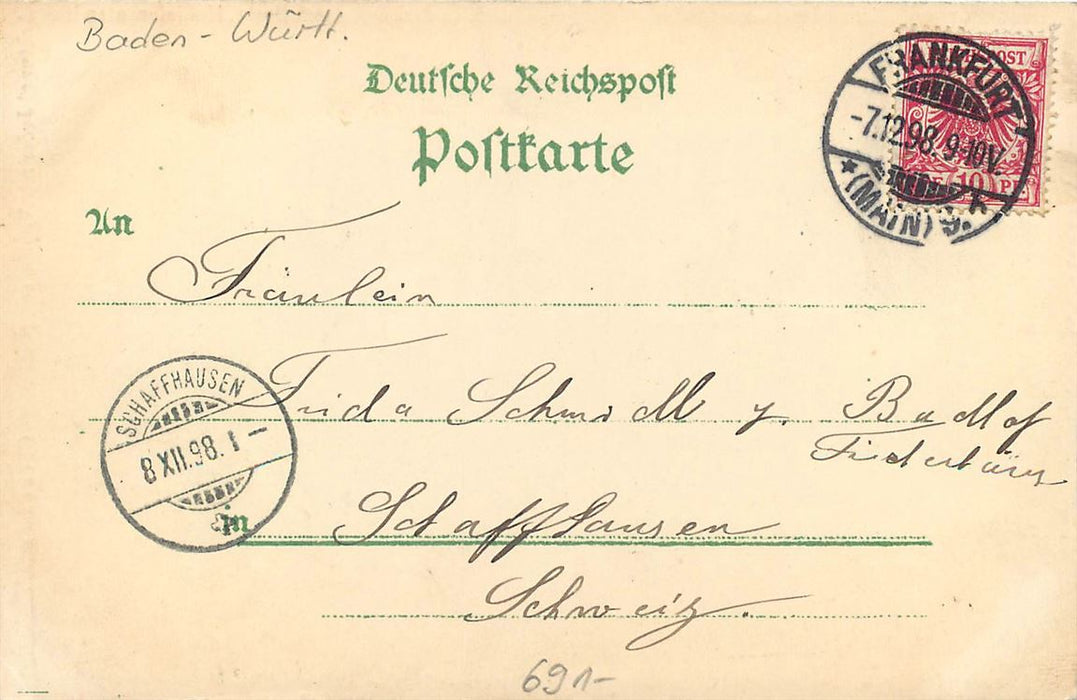 Baden-Württ.
Deutsche Reichspost
Postkarte
REICHSPOST
10 PF
FRANKFURT
-7.12.98. 9-10V.
* (MAIN) 9. *
An
Fräulein
Frida Schmidt z.
in
Schaffhausen
Schweiz.
SCHAFFHAUSEN
8 XII.98. 1 –
691-